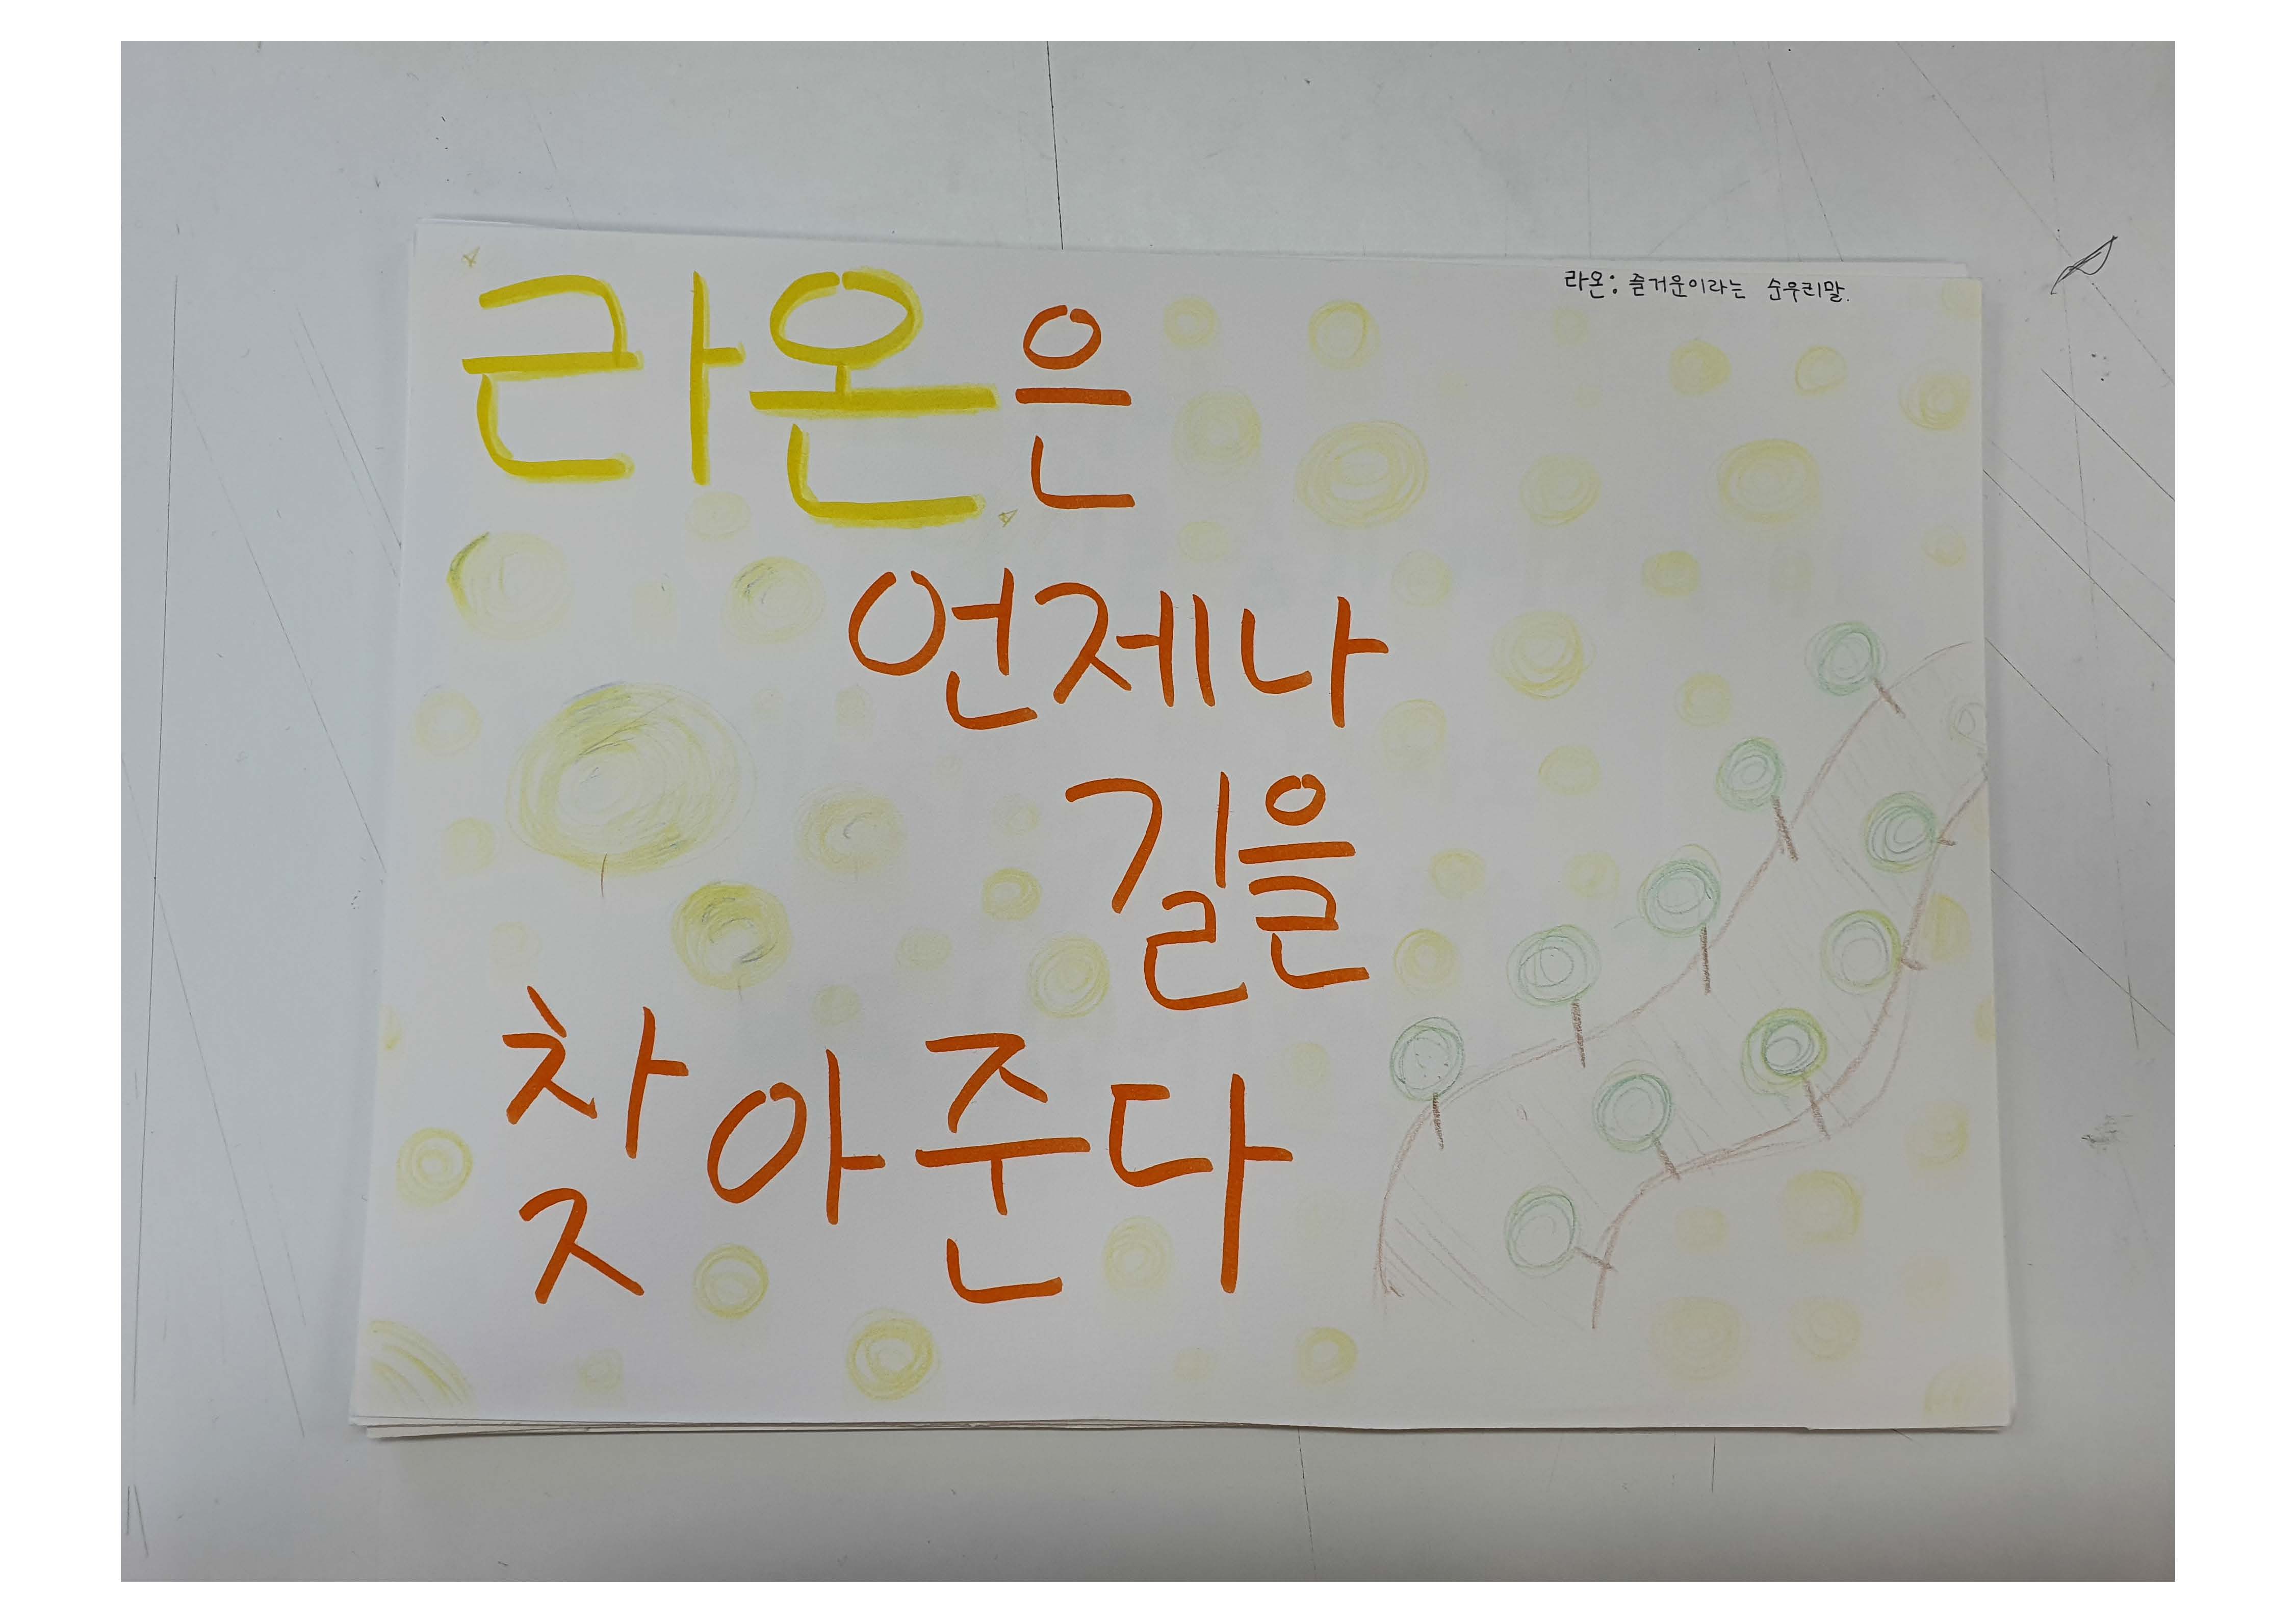 라온은
언제나
길을
찾아준다
라온: 즐거운이라는 순우리말.